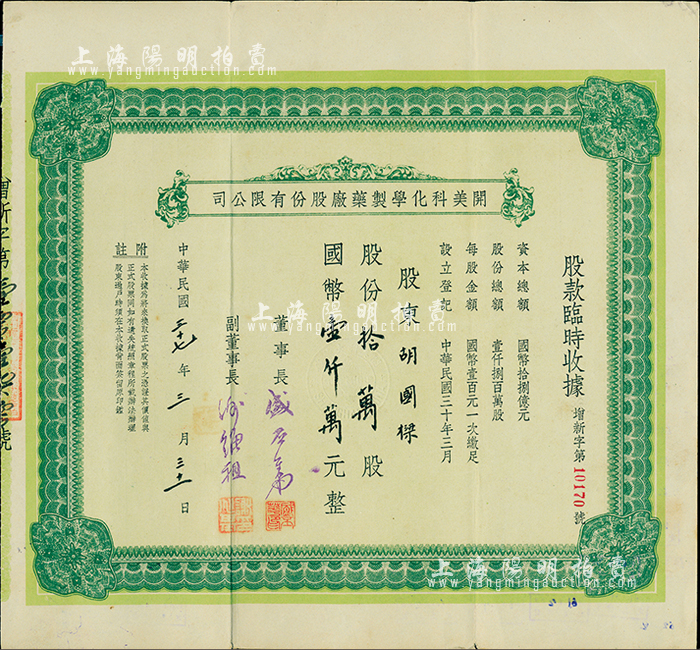 上海陽明拍賣
www.yangmingauction.com
開美科化學製藥廠股份有限公司
股款臨時收據
增新字第10170號
資本總額 國幣拾捌億元
股份總額 壹仟捌百萬股
每股金額 國幣壹百元一次繳足
設立登記 中華民國三十年三月
股東 胡國樑
股份拾萬股
國幣壹仟萬元整
董事長
副董事長
中華民國三十七年三月三十一日
附註
本收據為將來換取正式股票之憑證其價值與
正式股票同如有遺失依照章程所載辦法辦理
股東過戶時須在本收據背面簽留原印鑑
上海陽明拍賣
www.yangmingauction.com
上海陽明拍賣
www.yangmingauction.com